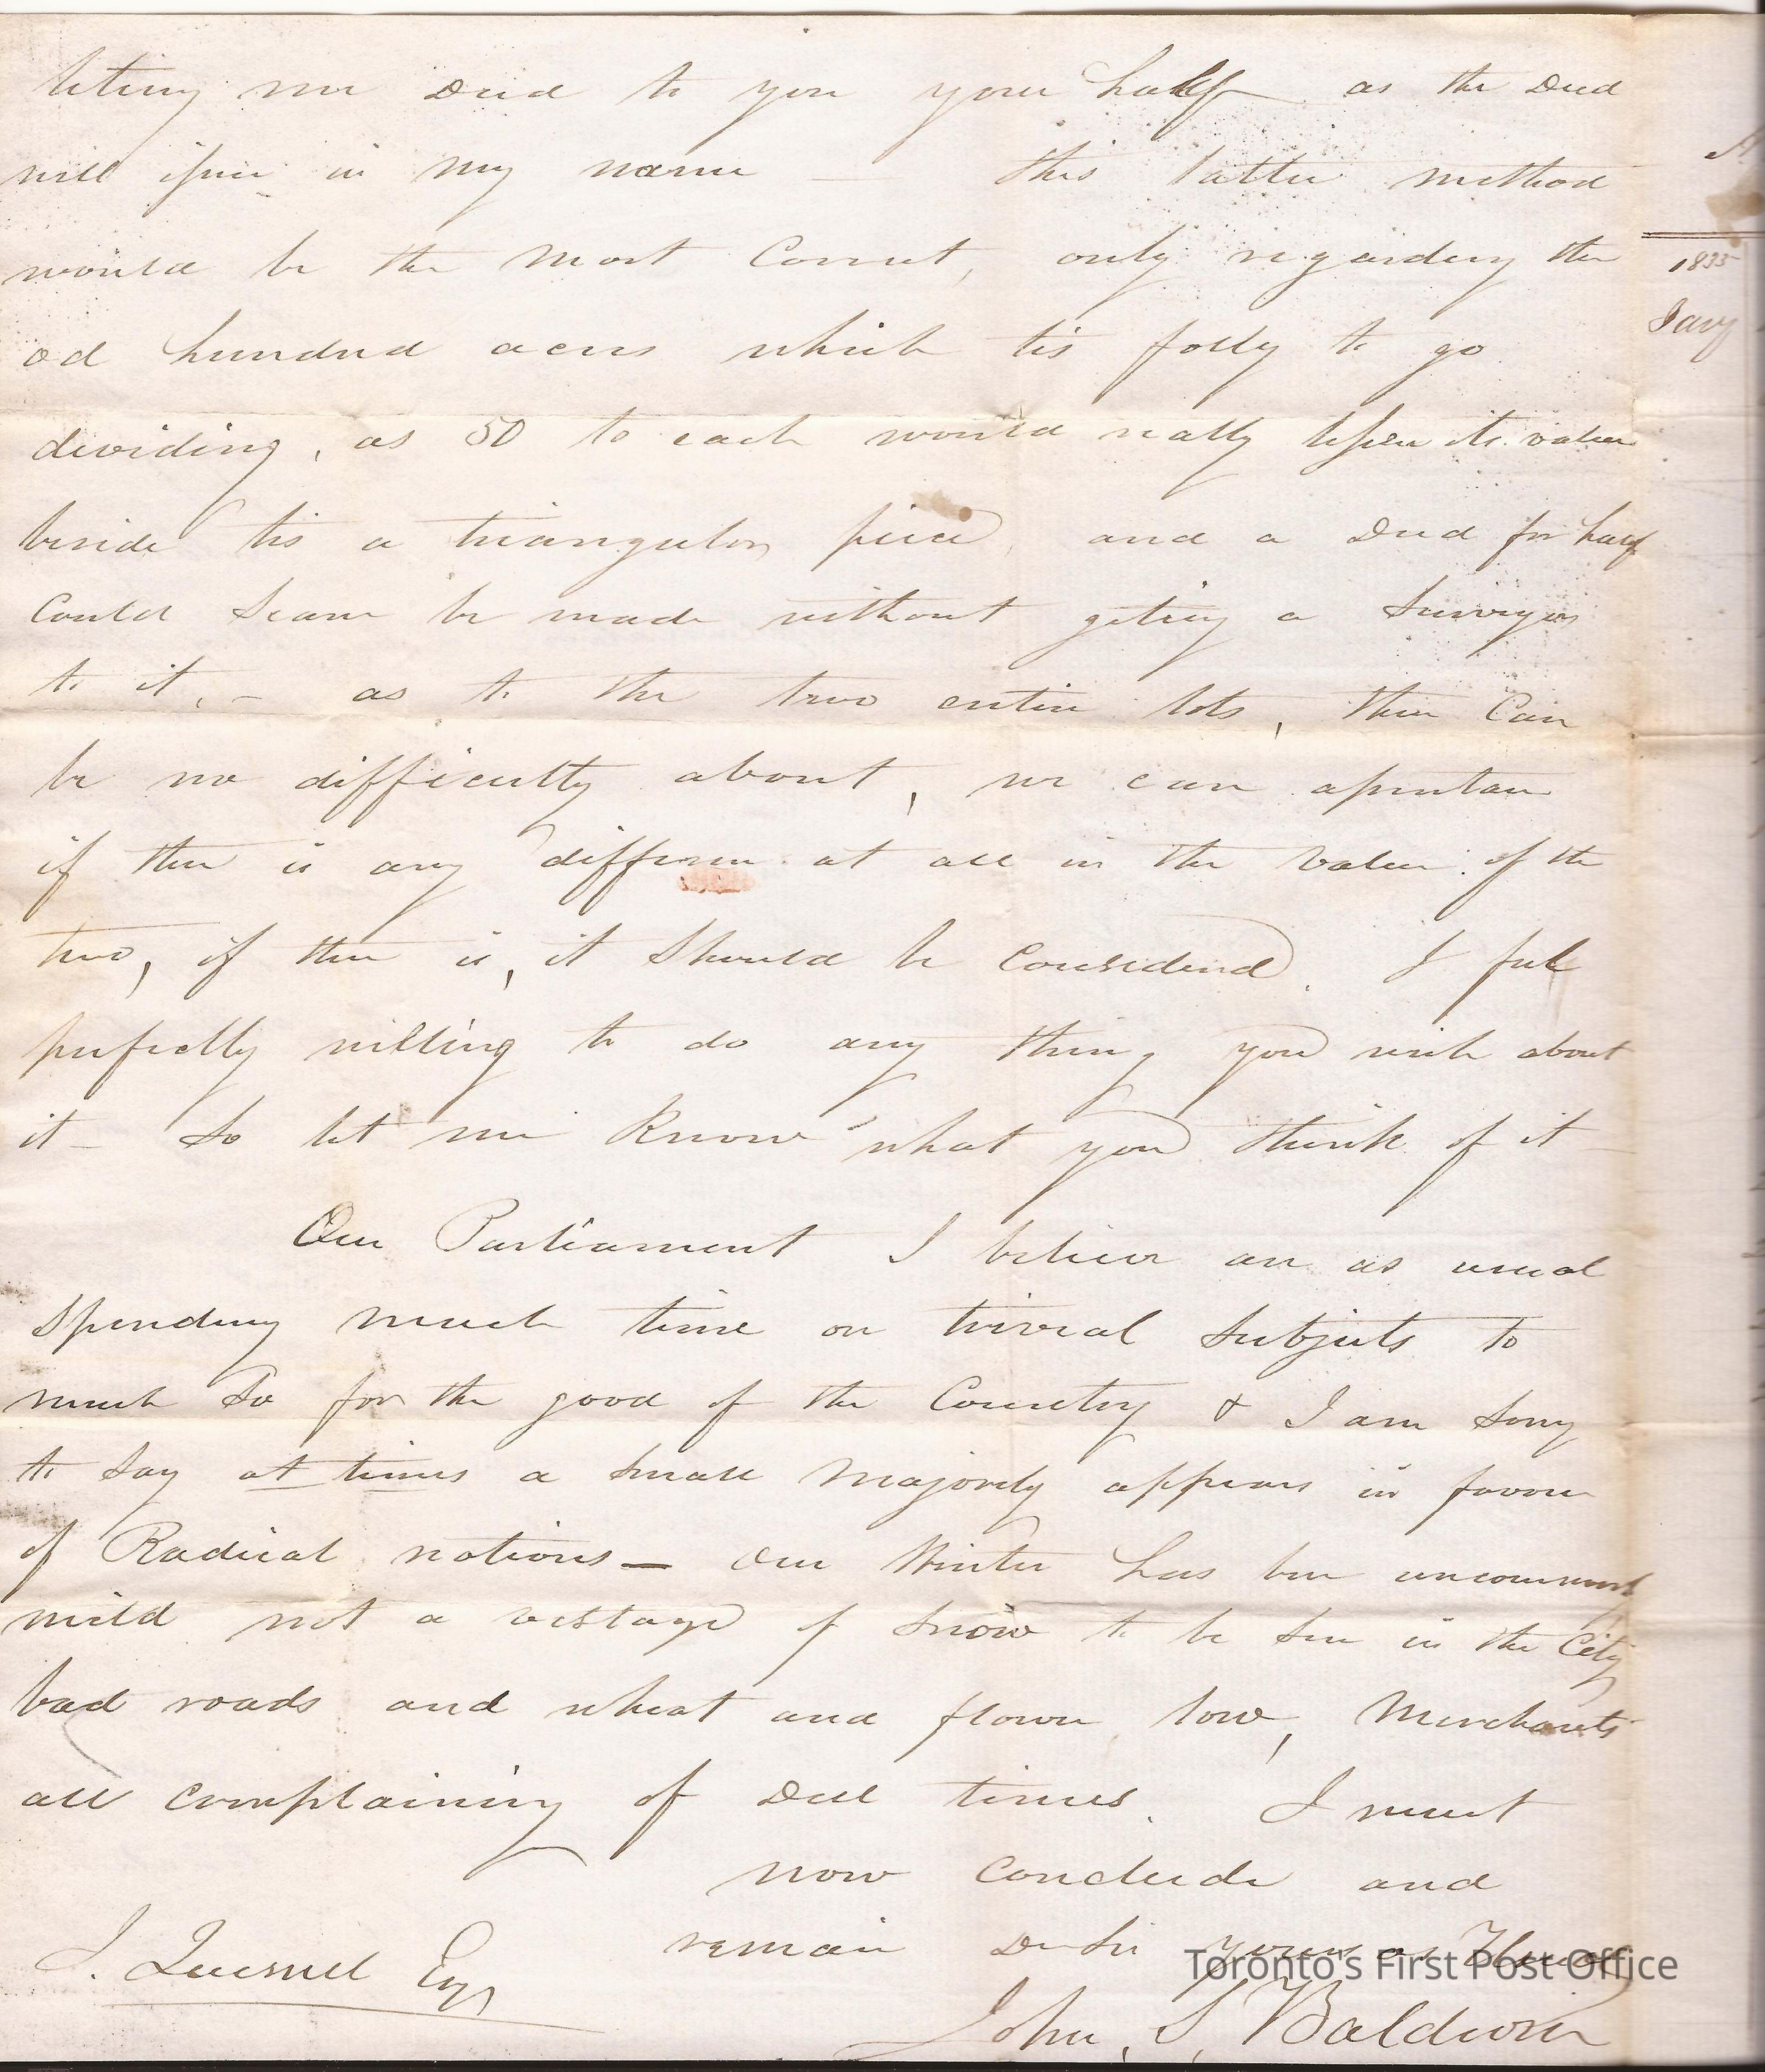 leting me Deed to you your half as the Deed
will issue in my name — this latter method
would be the most Correct, only regarding the
od hundred acres which tis folly to go
dividing, as 50 to each would really lessen its value
beside tis a triangular piece and a Deed for half
Could scarce be made without geting a Surveyor
to it, — as to the two entire lots, there Can
be no difficulty about, we can
if there is any difference at all in the Value of the
two, if there is, it Should be Considered. I feel
perfectly willing to do any thing you wish about
it — So let me Know what you think of it —
Our Parliament I believe are as usual
Spending much time on trivial Subjects to
much So for the good of the Country & I am Sorry
to Say at times a Small Majority appears in favour
of Radical notions — Our Winter has been uncommonly
mild not a vestage of Snow to be Seen in the City
bad roads and wheat and flour low, Merchants
all Complaining of Dull times. I must
now Conclude and
remain Dr Sir yours
John S. Baldwin
J. Quesnel Esqr
1835
Jany
Toronto's First Post Office